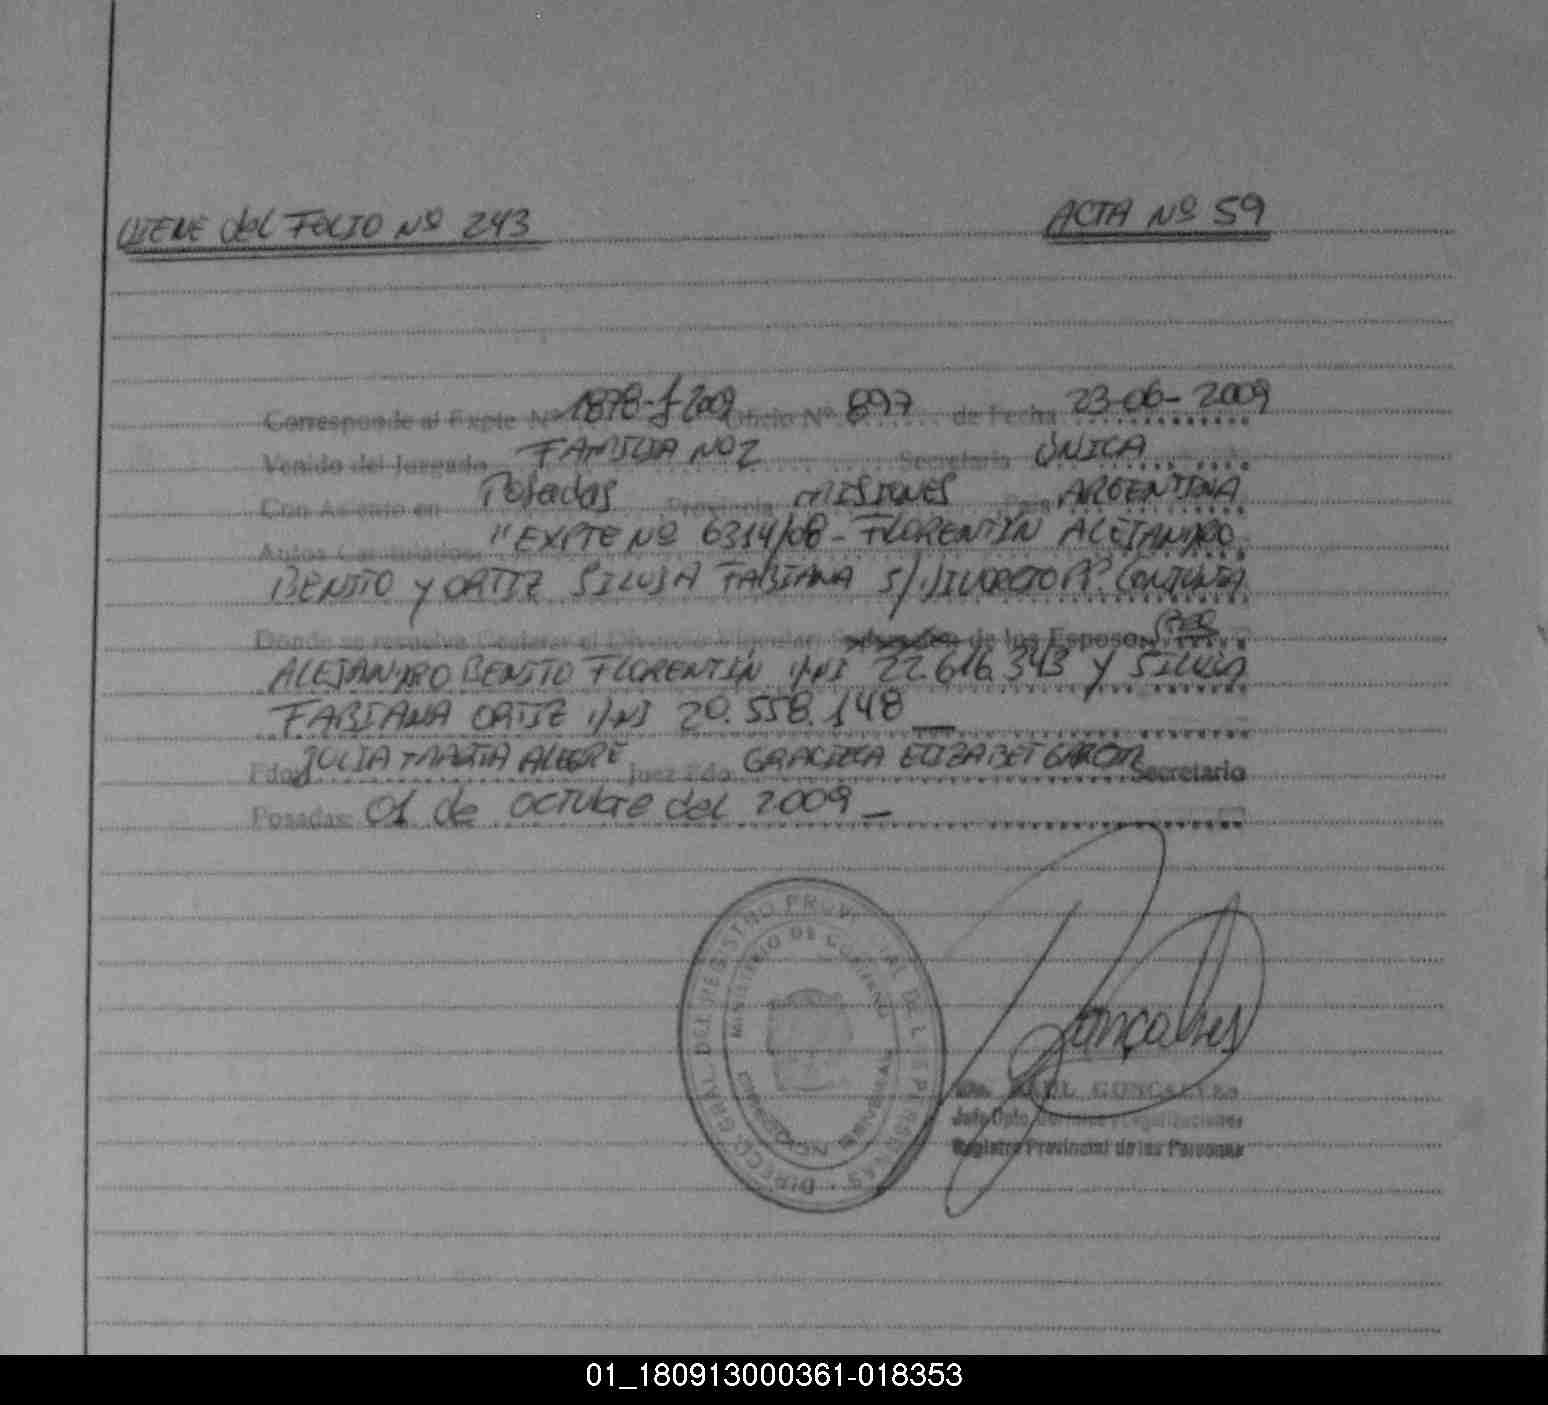 VIENE del FOLIO Nº 243 ACTA Nº 59
Corresponde al Expte Nº 1878-J-2009 Oficio Nº 897 de Fecha 23-06-2009
Venido del Juzgado FAMILIA Nº 2 Secretaria ÚNICA
Con Asiento en Posadas Provincia MISIONES País ARGENTINA
Autos Caratulados "EXPTE Nº 6314/08 - FLORENTÍN ALEJANDRO
BENITO y ORTIZ SILVIA FABIANA S/ DIVORCIO PP. CONJUNTA
Donde se resuelve Declarar el Divorcio Vincular de los Esposos
ALEJANDRO BENITO FLORENTÍN DNI 22.616.343 y SILVIA
FABIANA ORTIZ DNI 20.558.148
Fdo. JULIA MARTA ALEGRE Juez Fdo. GRACIELA ELIZABET GARCIA Secretario
Posadas: 01 de octubre del 2009
DIRECC. GRAL. DEL REGISTRO PROVINCIAL DE LAS PERSONAS
MINISTERIO DE GOBIERNO
MISIONES
Goncalves
RAUL GONCALVES
Jefe Dpto.
Registro Provincial de las Personas
01_180913000361-018353